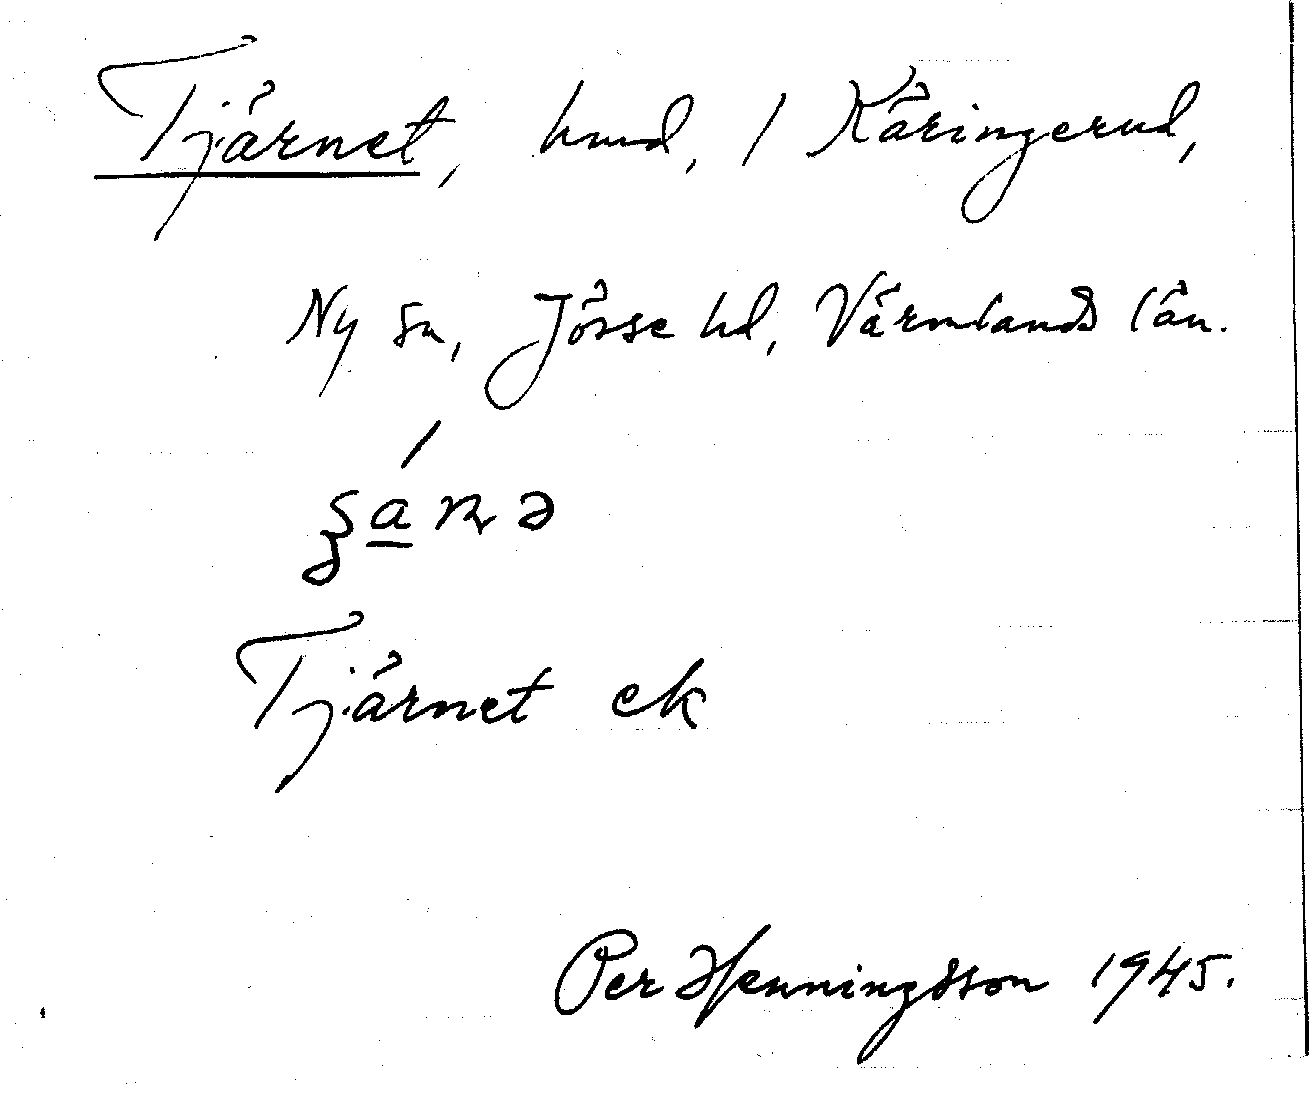 Tjärnet, hmd, 1 Käringerud,
Ny sn, Jösse hd, Värmlands län.
Tjärnet ek
Per Henningsson 1945.